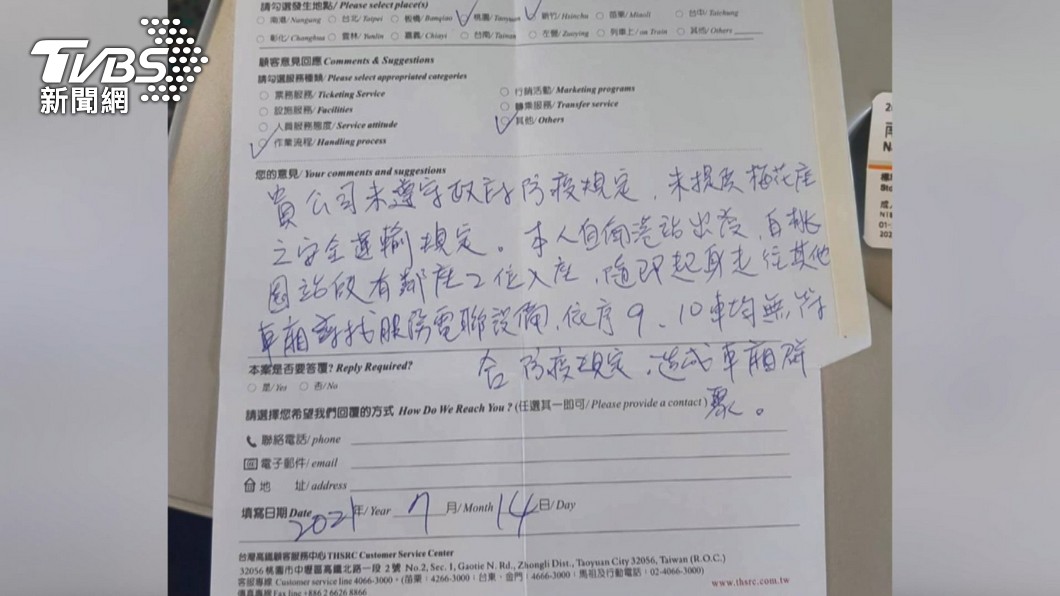 TVBS
新聞網
請勾選發生地點/ Please select place(s)
南港/Nangang 台北/Taipei 板橋/Banqiao 桃園/Taoyuan 新竹/Hsinchu 苗栗/Miaoli 台中/Taichung
彰化/Changhua 雲林/Yunlin 嘉義/Chiayi 台南/Tainan 左營/Zuoying 列車上/on Train 其他/Others
顧客意見回應 Comments & Suggestions
請勾選服務種類/Please select appropriated categories
票務服務/Ticketing Service 行銷活動/Marketing programs
設施服務/Facilities 轉乘服務/Transfer service
人員服務態度/Service attitude 其他/Others
作業流程/Handling process
您的意見/Your comments and suggestions
貴公司未遵守政府防疫規定，未提供梅花座
之安全運輸規定。本人自南港站出發，自桃
園站後有鄰座2位入座，隨即起身走往其他
車廂尋找服務電聯設備，依序9、10車均無符
合防疫規定，造成車廂群
聚。
本案是否要答覆? Reply Required?
是/Yes 否/No
請選擇您希望我們回覆的方式 How Do We Reach You ? (任選其一即可/ Please provide a contact)
聯絡電話/phone
電子郵件/email
地 址/address
填寫日期Date 2021年/Year 7月/Month 14日/Day
台灣高鐵顧客服務中心THSRC Customer Service Center
32056 桃園市中壢區高鐵北路一段 2 號 No.2, Sec. 1, Gaotie N. Rd., Zhongli Dist., Taoyuan City 32056, Taiwan (R.O.C.)
客服專線 Customer service line 4066-3000，(苗栗：4266-3000；台東、金門：4666-3000；馬祖及行動電話：02-4066-3000)
傳真專線Fax line +886 2 6626 8866
www.thsrc.com.tw